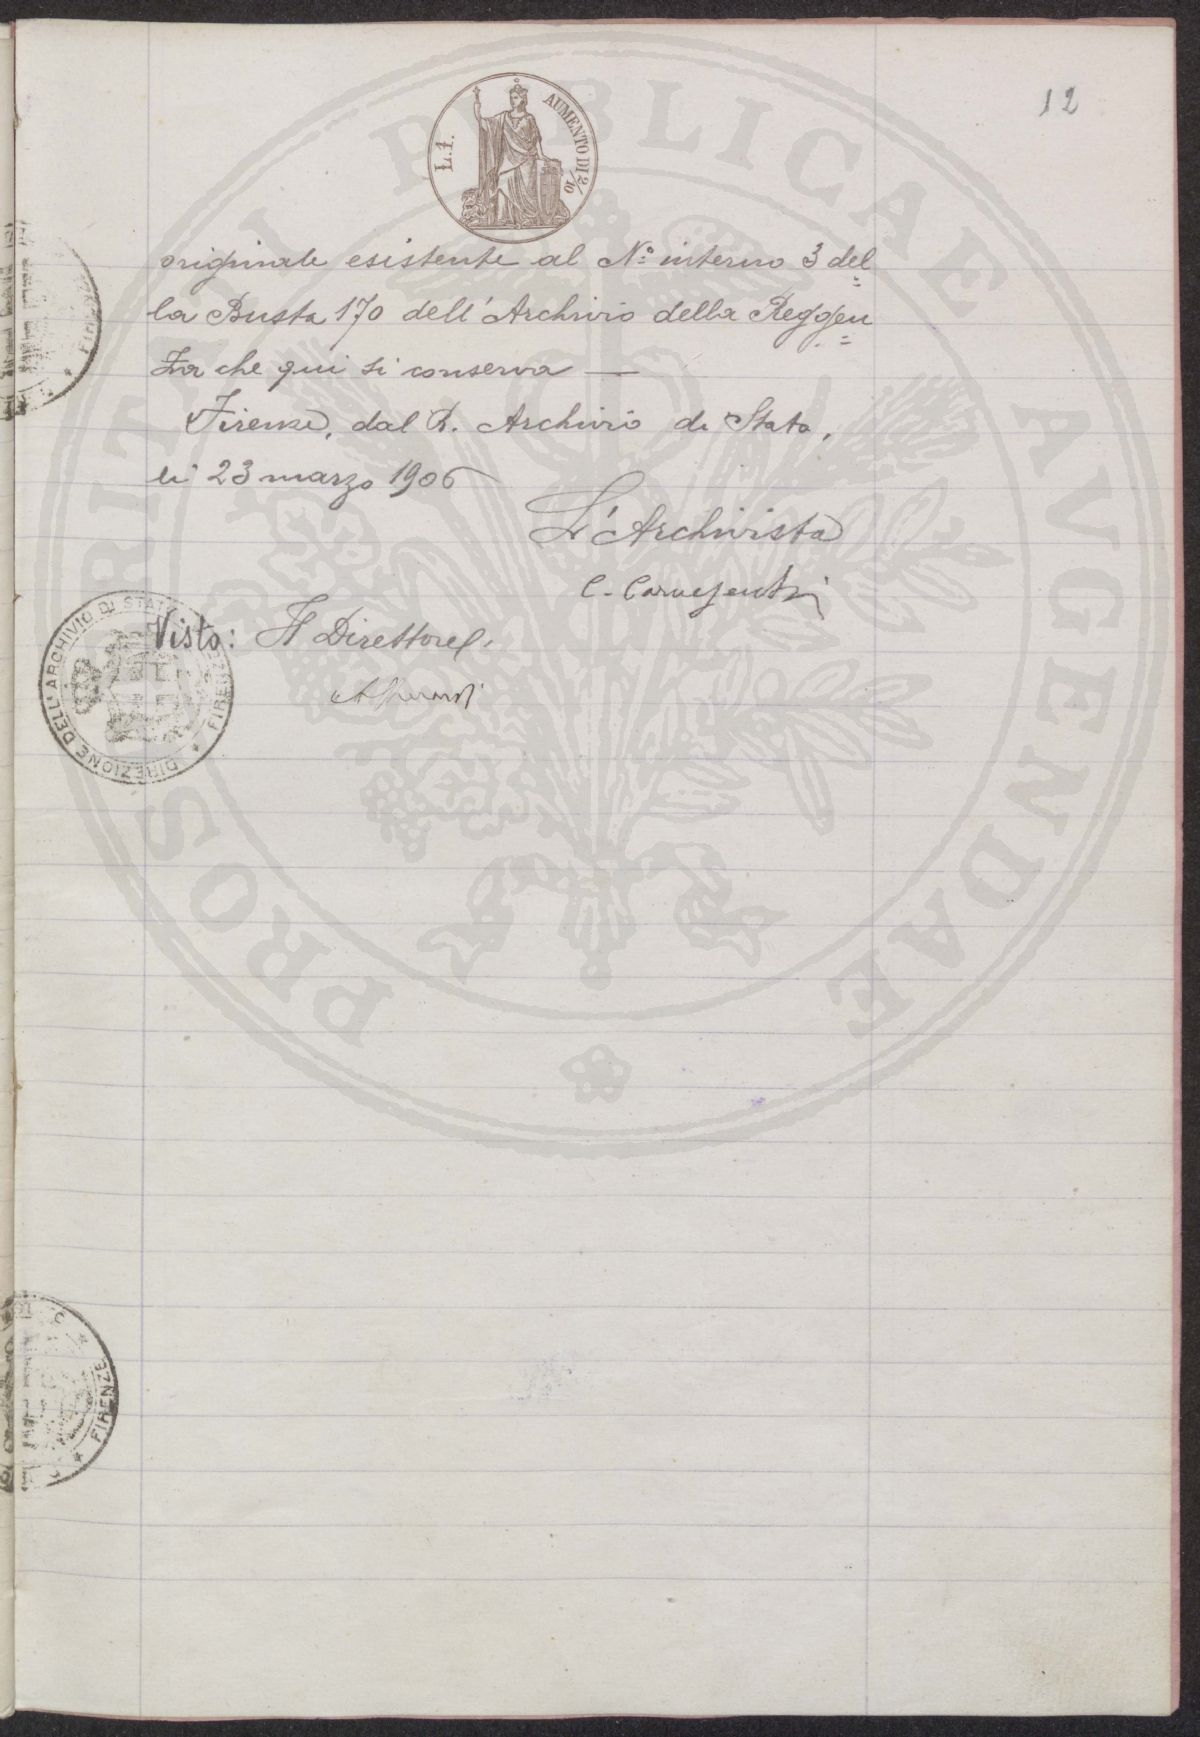 12
L. 1.
AUMENTO DI 2/10
originale esistente al N.º interno 3 del=
la Busta 170 dell'Archivio della Reggen=
za che qui si conserva —
Firenze, dal R. Archivio di Stato,
li 23 marzo 1906
L'Archivista
C.
Visto: Il Direttore
DIREZIONE DELL'ARCHIVIO DI STATO
FIRENZE
FIRENZE
FIRENZE
PROSPERITATI PUBLICAE AVGENDAE